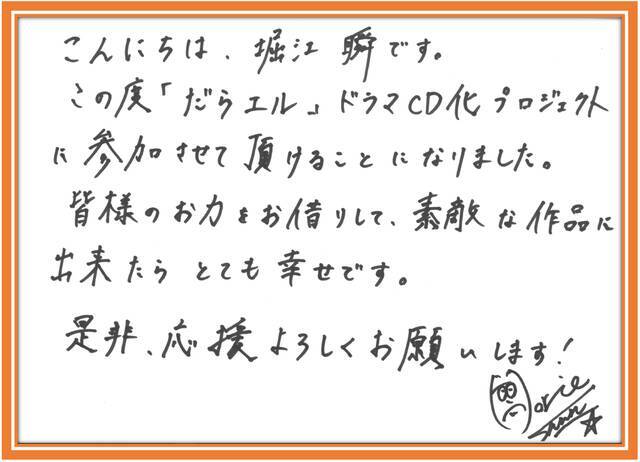 こんにちは、堀江 瞬です。
この度「だらエル」ドラマCD化プロジェクト
に参加させて頂けることになりました。
皆様のお力をお借りして、素敵な作品に
出来たら とても幸せです。
是非、応援よろしくお願いします!